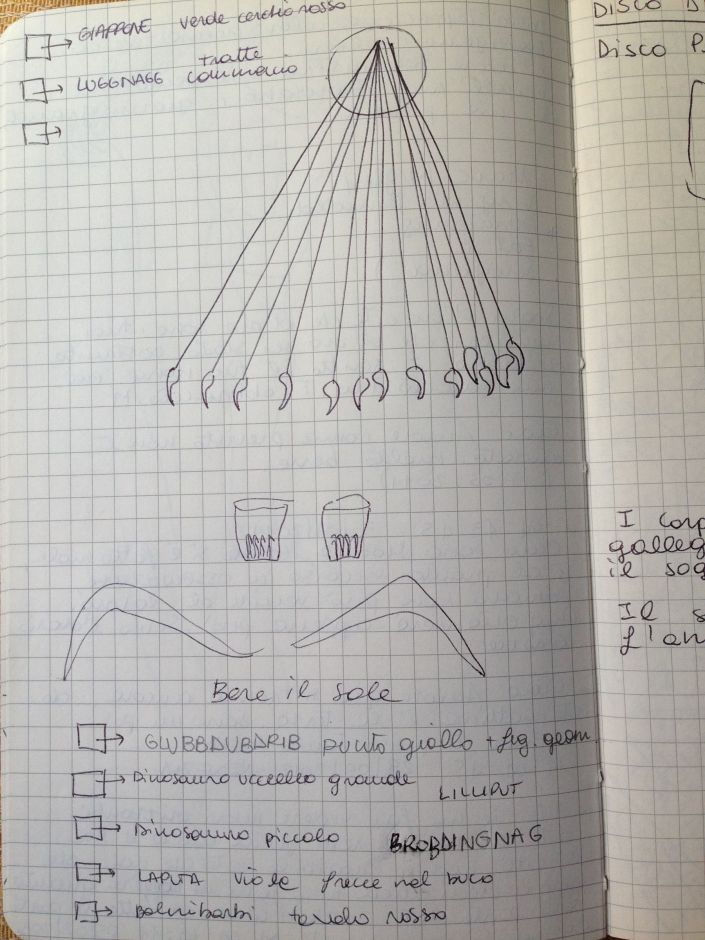 GIAPPONE verde cerchio rosso
LUGGNAGG tratte
cammino
Bere il sole
GLUBBDUBDRIB punto giallo + fig. geom.
Dinosauro uccello grande LILLIPUT
Dinosauro piccolo BROBDINGNAG
LAPUTA viola frecce nel buco
Balnibarbi tavolo rosso
DISCO
DISCO P
I corp
galleg
il sog
Il s
l'an